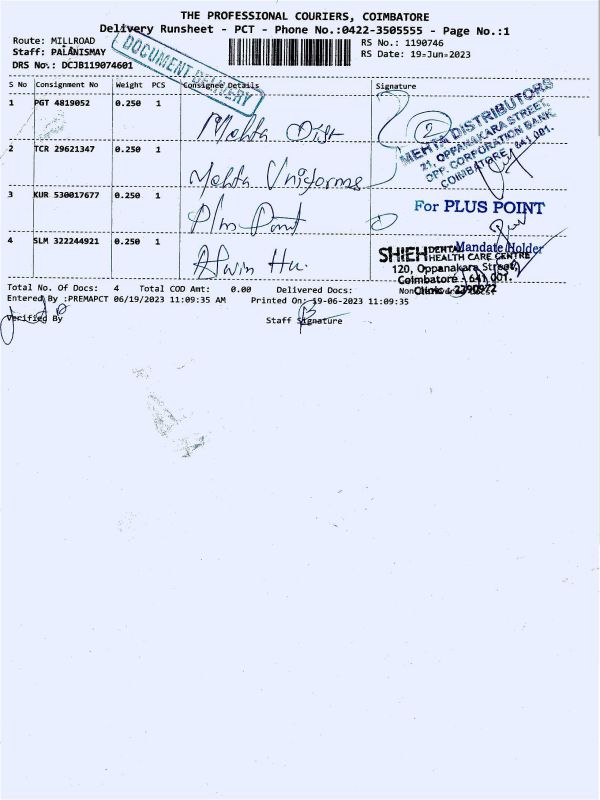 THE PROFESSIONAL COURIERS, COIMBATORE
Delivery Runsheet - PCT - Phone No.:0422-3505555 - Page No.:1
Route: MILLROAD
RS No.: 1190746
Staff: PALANISMAY
RS Date: 19-Jun-2023
DRS No.: DCJB119074601
DOCUMENT DELIVERY
S No Consignment No Weight PCS Consignee Details Signature
1 PGT 4819052 0.250 1 Mehta Dist 2
MEHTA DISTRIBUTORS
21, OPPANAKARA STREET,
OPP. CORPORATION BANK,
COIMBATORE - 641 001.
2 TCR 29621347 0.250 1 Mehta Uniforms
3 KUR 530017677 0.250 1 Plus Point
For PLUS POINT
Mandate Holder
4 SLM 322244921 0.250 1
SHIEH DENTAL HEALTH CARE CENTRE
120, Oppanakara Street,
Coimbatore - 641 001.
Clinic : 2390972
Total No. Of Docs: 4 Total COD Amt: 0.00 Delivered Docs:
Entered By :PREMAPCT 06/19/2023 11:09:35 AM Printed On: 19-06-2023 11:09:35
Verified By Staff Signature